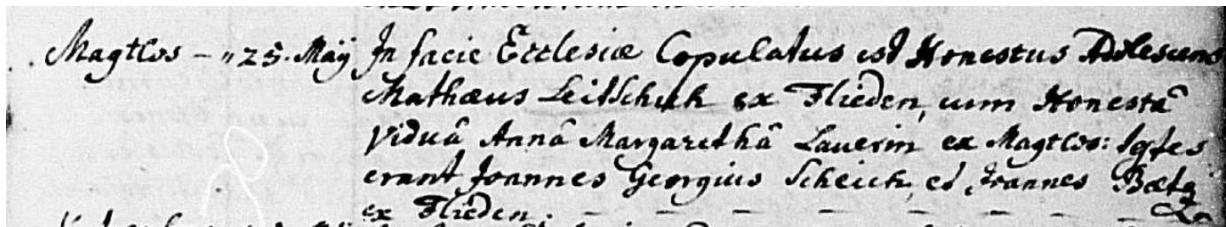 Magtlos – " 25. Maÿ In facie Ecclesiæ Copulatus est Honestus Adolescens
Mathæus Leitschuh ex Flieden, cum Honestâ
Viduâ Annâ Margarethâ Lauerin ex Magtlos: Testes
erant Joannes Georgius Scheich, et Joannes
ex Flieden. – – – – – – – –